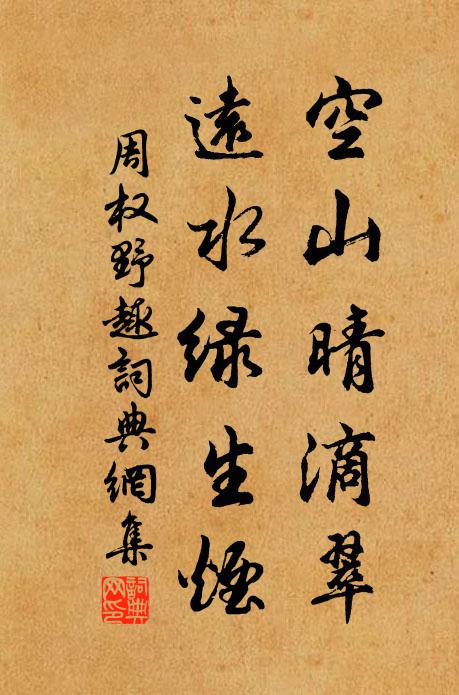 空山晴滴翠
遠水緑生煙
周权野趣詞典網集
詞典网印